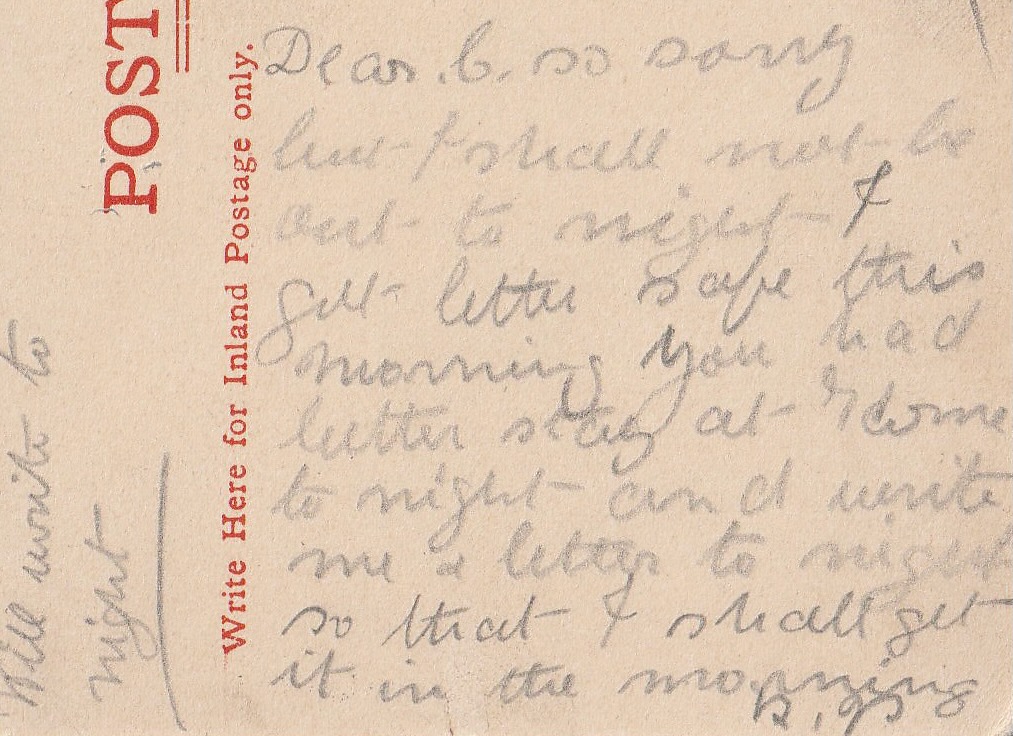 POST
Write Here for Inland Postage only.
Dear C. so sorry
but I shall not be
out to night I
gett letter safe this
morning you had
better stay at home
to night and write
me a letter to night
so that I shall get
it in the morning
Will write to
night